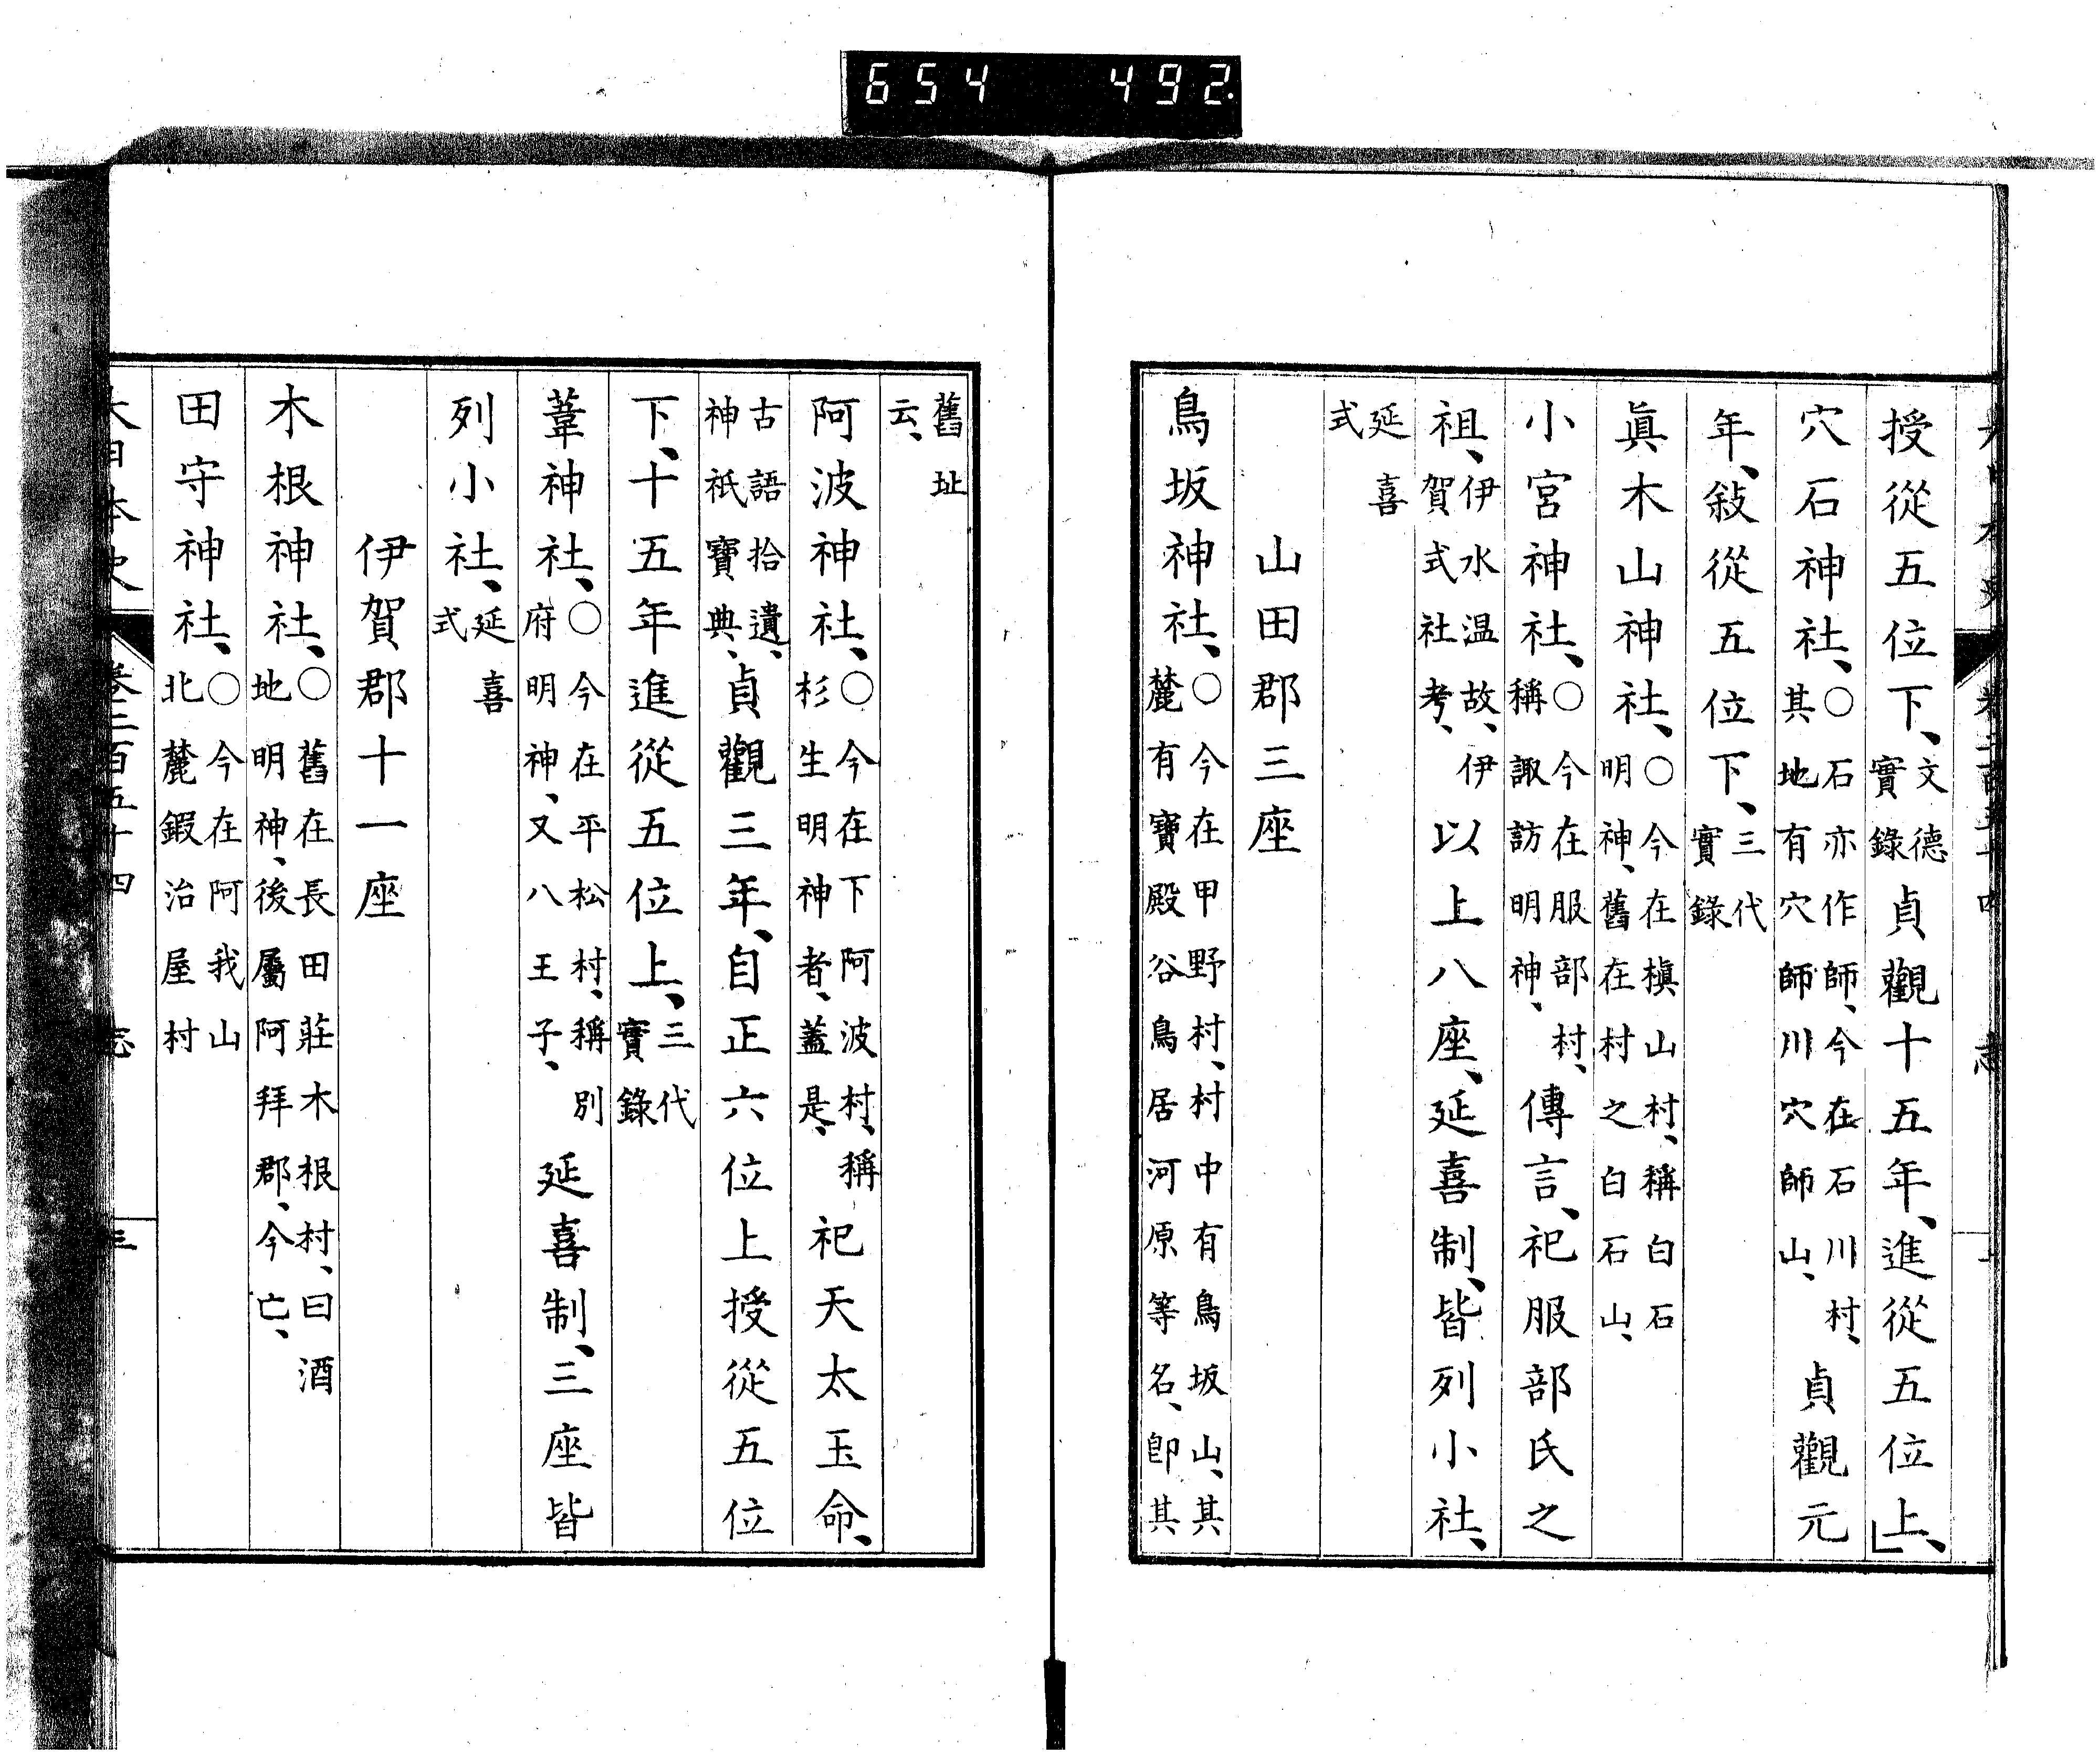 654 492
授從五位下、文德實錄貞觀十五年、進從五位上、
穴石神社、○石亦作師、今在石川村、其地有穴師川穴師山、貞觀元
年、敍從五位下、三代實錄
眞木山神社、○今在槇山村、稱白石明神、舊在村之白石山、
小宮神社、○今在服部村、稱諏訪明神、傳言、祀服部氏之
祖、伊水温故、伊賀式社考、以上八座、延喜制、皆列小社、
延喜式
山田郡三座
鳥坂神社、○今在甲野村、村中有鳥坂山、其麓有寶殿谷鳥居河原等名、卽其
舊址云、
阿波神社、○今在下阿波村、稱杉生明神者、蓋是、祀天太玉命、
古語拾遺、神祇寶典、貞觀三年、自正六位上授從五位
下、十五年進從五位上、三代實錄
葦神社、○今在平松村、稱別府明神、又八王子、延喜制、三座皆
列小社、延喜式
伊賀郡十一座
木根神社、○舊在長田莊木根村、曰酒地明神、後屬阿拜郡、今亡、
田守神社、○今在阿我山北麓鍜治屋村
大日本史 卷二百五十四 志 三